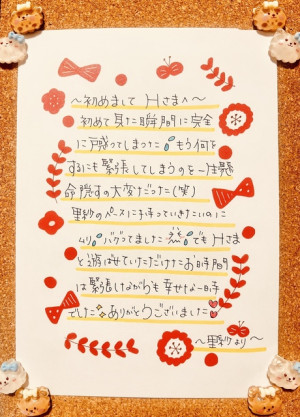 〜初めまして Hさまへ〜
初めて見た瞬間に完全
に戸惑ってしまった もう何を
するにも緊張してしまうのを一生懸
命隠すの大変だった(笑)
里紗のペースに持っていきたいのに
ムリ バグってました でもHさま
と遊ばせていただけたお時間
は緊張しながらも幸せな一時
でした ありがとうございました
〜里紗より〜